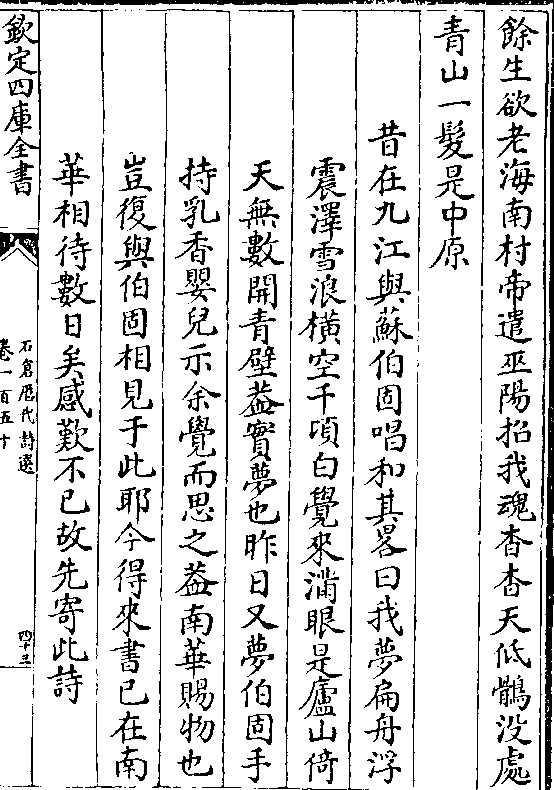 餘生欲老海南村帝遣巫陽招我魂杳杳天低鶻没處
青山一髮是中原
昔在九江與蘇伯固唱和其畧曰我夢扁舟浮
震澤雪浪橫空千頃白覺來滿眼是廬山倚
天無數開青壁葢實夢也昨日又夢伯固手
持乳香嬰兒示余覺而思之葢南華賜物也
豈復與伯固相見于此耶今得來書已在南
華相待數日矣感歎不已故先寄此詩
欽定四庫全書
石倉歴代詩選
卷一百五十
四十三